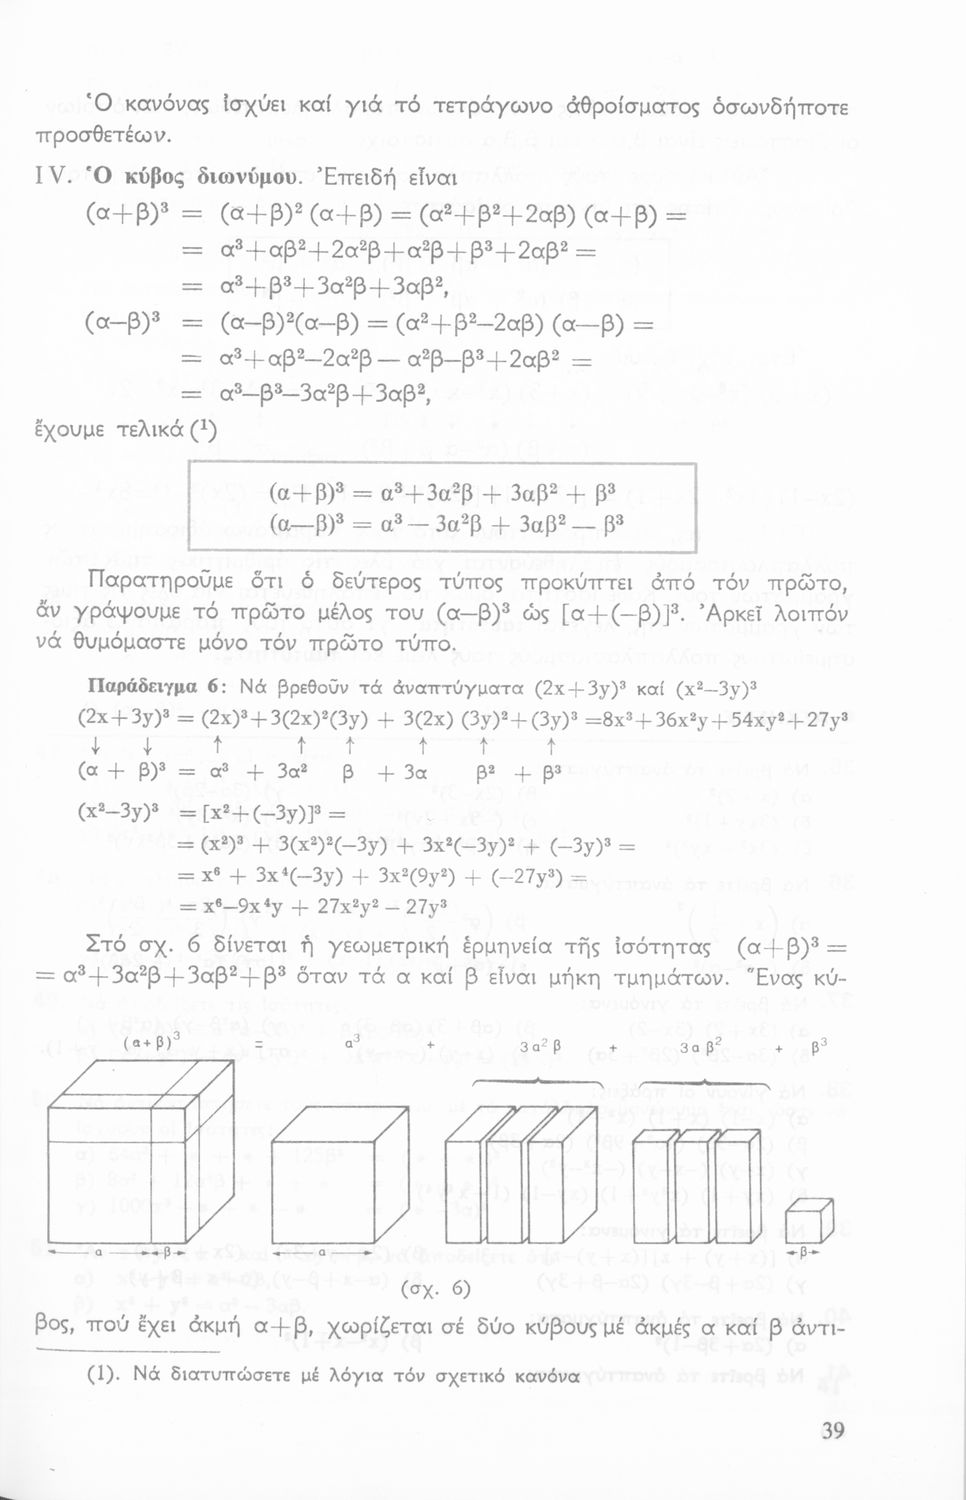 Ὁ κανόνας ἰσχύει καί γιά τό τετράγωνο ἀθροίσματος ὁσωνδήποτε
προσθετέων.
IV. Ὁ κύβος διωνύμου. Ἐπειδή εἶναι
(α+β)³ = (α+β)² (α+β) = (α²+β²+2αβ) (α+β) =
= α³+αβ²+2α²β+α²β+β³+2αβ² =
= α³+β³+3α²β+3αβ²,
(α–β)³ = (α–β)²(α–β) = (α²+β²–2αβ) (α—β) =
= α³+αβ²–2α²β — α²β–β³+2αβ² =
= α³–β³–3α²β+3αβ²,
ἔχουμε τελικά (¹)
(α+β)³ = α³+3α²β + 3αβ² + β³
(α—β)³ = α³ — 3α²β + 3αβ² — β³
Παρατηροῦμε ὅτι ὁ δεύτερος τύπος προκύπτει ἀπό τόν πρῶτο,
ἄν γράψουμε τό πρῶτο μέλος του (α–β)³ ὡς [α+(–β)]³. Ἀρκεῖ λοιπόν
νά θυμόμαστε μόνο τόν πρῶτο τύπο.
Παράδειγμα 6: Νά βρεθοῦν τά ἀναπτύγματα (2x+3y)³ καί (x²–3y)³
(2x+3y)³ = (2x)³+3(2x)²(3y) + 3(2x) (3y)²+(3y)³ =8x³+36x²y+54xy²+27y³
↓ ↓ ↑ ↑ ↑ ↑ ↑ ↑
(α + β)³ = α³ + 3α² β + 3α β² + β³
(x²–3y)³ = [x²+(–3y)]³ =
= (x²)³ + 3(x²)²(–3y) + 3x²(–3y)² + (–3y)³ =
= x⁶ + 3x⁴(–3y) + 3x²(9y²) + (–27y³) =
= x⁶–9x⁴y + 27x²y² – 27y³
Στό σχ. 6 δίνεται ἡ γεωμετρική ἑρμηνεία τῆς ἰσότητας (α+β)³ =
= α³+3α²β+3αβ²+β³ ὅταν τά α καί β εἶναι μήκη τμημάτων. Ἕνας κύ-
(α+β)³ = α³ + 3α²β + 3αβ² + β³
α β α β
(σχ. 6)
βος, πού ἔχει ἀκμή α+β, χωρίζεται σέ δύο κύβους μέ ἀκμές α καί β ἀντι-
(1). Νά διατυπώσετε μέ λόγια τόν σχετικό κανόνα
39